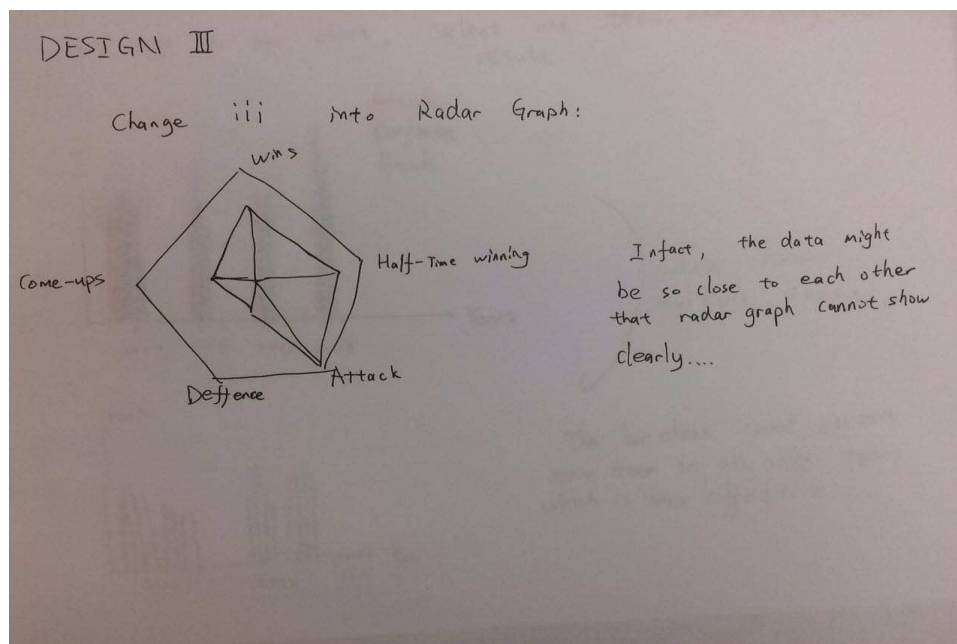 DESIGN III
Change iii into Radar Graph:
Wins
Half-Time winning
Come-ups
Attack
Deffence
Infact, the data might
be so close to each other
that radar graph cannot show
clearly....